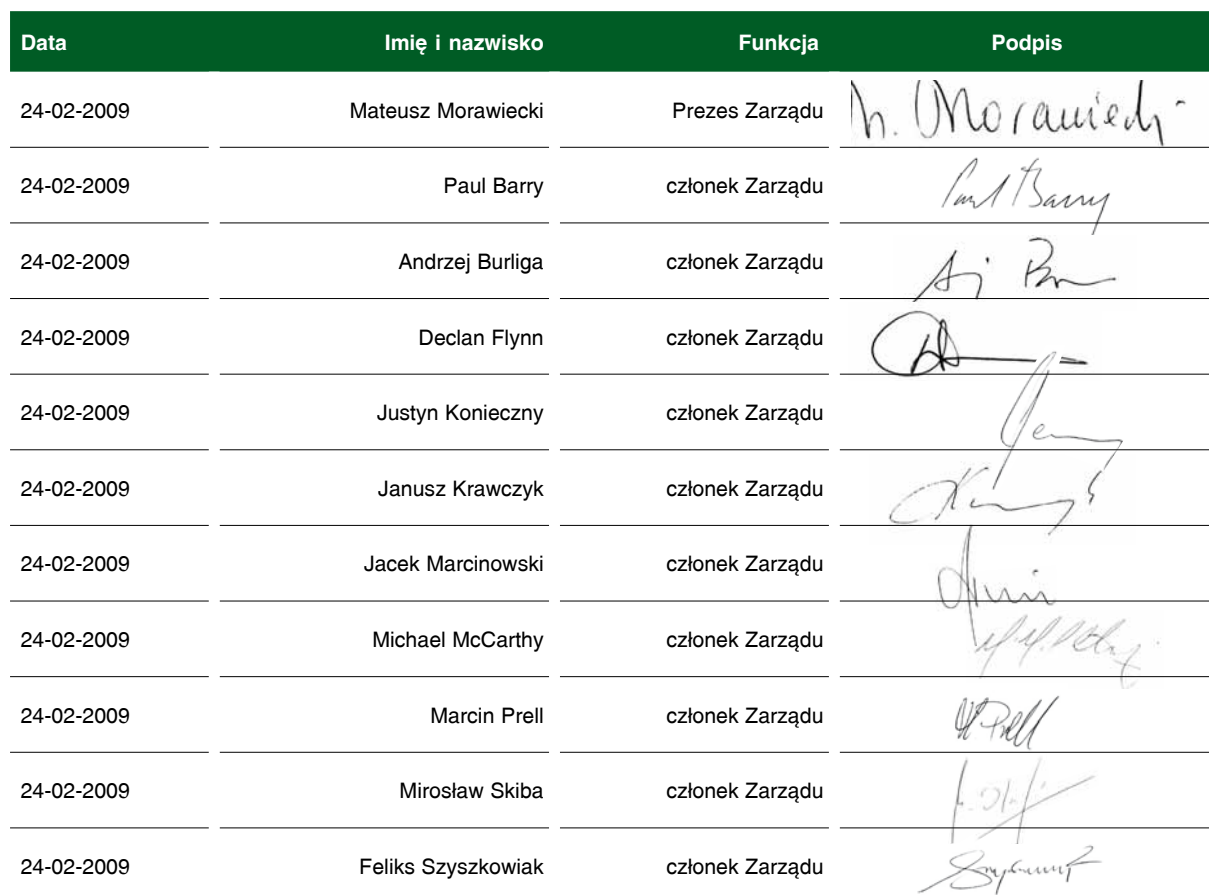 Data Imię i nazwisko Funkcja Podpis
24-02-2009 Mateusz Morawiecki Prezes Zarządu M. Morawiecki
24-02-2009 Paul Barry członek Zarządu Paul Barry
24-02-2009 Andrzej Burliga członek Zarządu
24-02-2009 Declan Flynn członek Zarządu
24-02-2009 Justyn Konieczny członek Zarządu
24-02-2009 Janusz Krawczyk członek Zarządu
24-02-2009 Jacek Marcinowski członek Zarządu
24-02-2009 Michael McCarthy członek Zarządu
24-02-2009 Marcin Prell członek Zarządu M Prell
24-02-2009 Mirosław Skiba członek Zarządu
24-02-2009 Feliks Szyszkowiak członek Zarządu